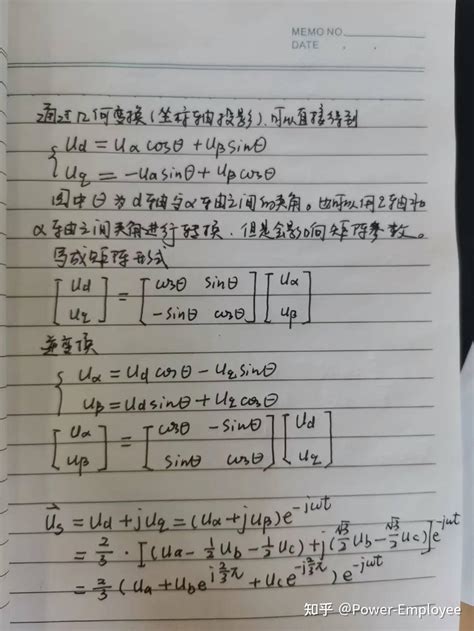 MEMO NO.
DATE
通过几何变换(坐标轴投影),可以直接得到
{ Ud = Uα cosθ + Uβ sinθ
Uq = -Uα sinθ + Uβ cosθ
图中θ为d轴与α轴之间的夹角。也可以用q轴和
α轴之间夹角进行转换,但是会影响矩阵参数。
写成矩阵形式
[Ud Uq] = [cosθ sinθ -sinθ cosθ] [Uα Uβ]
逆变换
{ Uα = Ud cosθ - Uq sinθ
Uβ = Ud sinθ + Uq cosθ
[Uα Uβ] = [cosθ -sinθ sinθ cosθ] [Ud Uq]
U⃗s = Ud + jUq = (Uα + jUβ) e^{-jωt}
= 2/3 · [(Ua - 1/2 Ub - 1/2 Uc) + j(√3/2 Ub - √3/2 Uc)] e^{-jωt}
= 2/3 (Ua + Ub e^{j2/3π} + Uc e^{-j2/3π}) e^{-jωt}
知乎 @Power-Employee